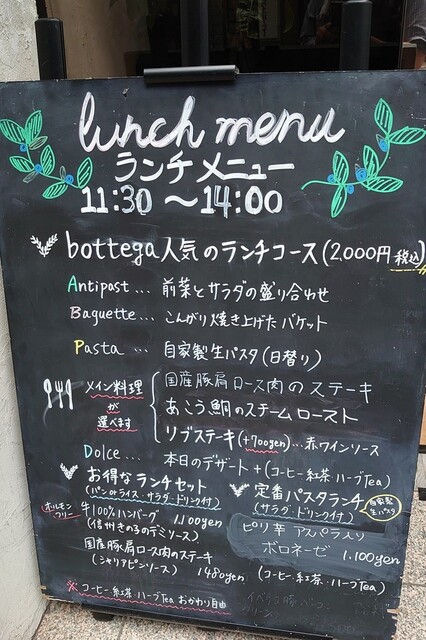 lunch menu
ランチメニュー
11:30 〜14:00
bottega人気のランチコース(2,000円税込)
Antipast... 前菜とサラダの盛り合わせ
Baguette... こんがり焼き上げたバケット
Pasta ... 自家製生パスタ(日替り)
メイン料理が選べます
国産豚肩ロース肉のステーキ
あこう鯛のスチームロースト
リブステーキ(+700yen)...赤ワインソース
Dolce... 本日のデザート+(コーヒー紅茶ハーブTea)
お得なランチセット
(パンorライス・サラダ・ドリンク付)
ホルモンフリー
牛100%ハンバーグ 1,100yen
(信州きのこのデミソース)
国産豚肩ロース肉のステーキ
(シャリアピンソース) 1480yen
定番パスタランチ
(サラダ・ドリンク付)
自家製生パスタ
ピリ辛アスパラ入り
ボロネーゼ 1,100yen
(コーヒー・紅茶・ハーブTea)
※コーヒー紅茶ハーブTeaおかわり自由